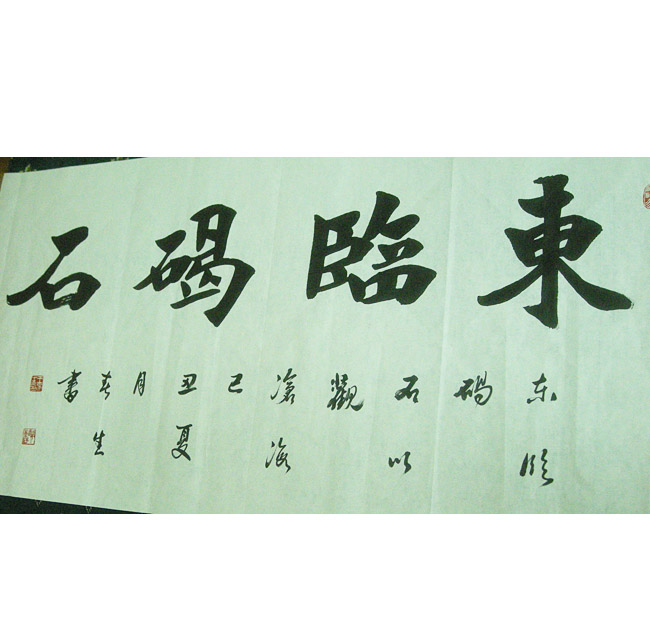 東臨碣石
东临
碣
石以
觀
滄海
己
丑夏
月
春生
書